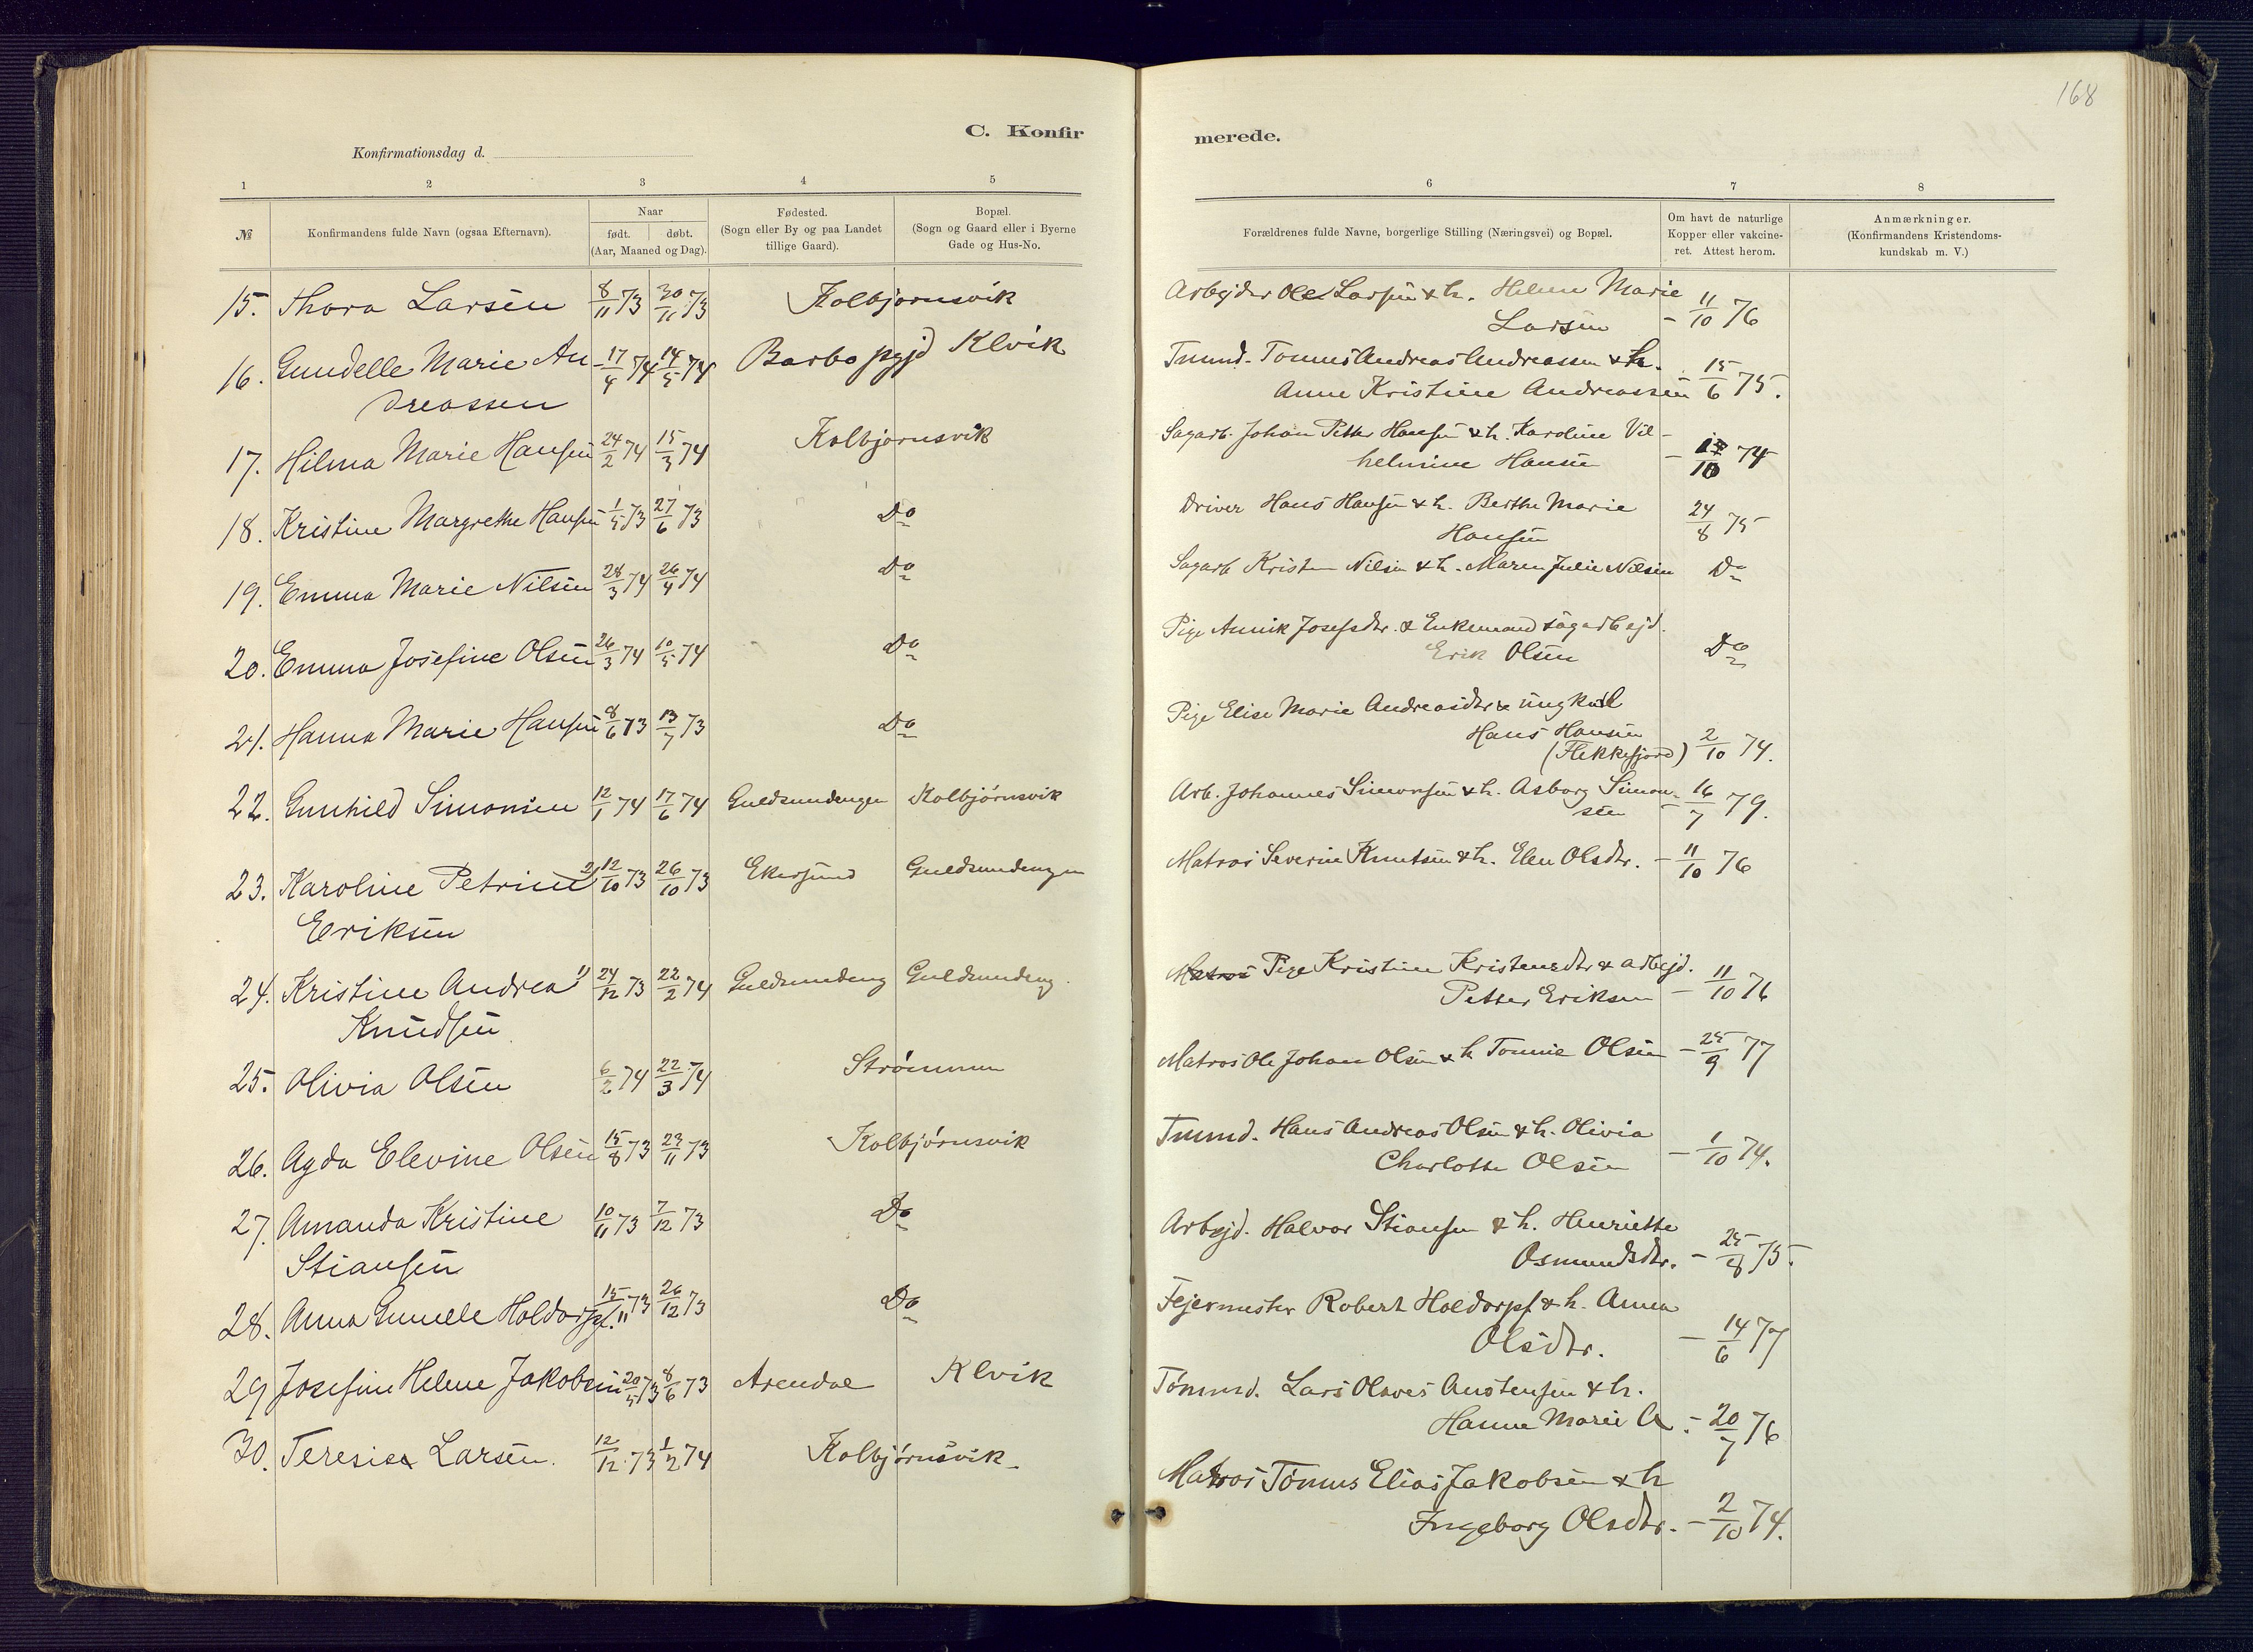 168
C. Konfir
merede.
Konfirmationsdag d.
1 2 3 4 5
6 7 8
№
Konfirmandens fulde Navn (ogsaa Efternavn).
Naar
født. døbt.
(Aar, Maaned og Dag).
Fødested.
(Sogn eller By og paa Landet
tillige Gaard).
Bopæl.
(Sogn og Gaard eller i Byerne
Gade og Hus-No.
Forældrenes fulde Navne, borgerlige Stilling (Næringsvei) og Bopæl.
Om havt de naturlige
Kopper eller vakcine-
ret. Attest herom.
Anmærkninger.
(Konfirmandens Kristendoms-
kundskab m. V.)
15. Thora Larsen 8/11 73 30/11 73 Kolbjornsvik
Arbejder Ole Larsen & h. Helene Marie
Larsen - 11/10 76
16. Gundelle Marie An 17/4 74 14/5 74 Barbo pgjd Klvik
dreassen
Tmmd. Tonnes Andreas Andreassen & h.
Anne Kristine Andreassen 15/6 75.
17. Hilma Marie Hansen 24/2 74 15/3 74 Kolbjornsvik
Sagarb. Johan Petter Hansen & h. Karoline Vil-
helmine Hansen - 74
18. Kristine Margrethe Hansen 1/5 73 27/6 73 Do
Driver Hans Hansen & h. Berthe Marie
Hansen 24/8 75
19. Emma Marie Nilsen 28/3 74 26/4 74 Do
Sagarb Kristen Nilsen & h. Maren Julie Nilsen Do
20. Emma Josefine Olsen 26/3 74 10/5 74 Do
Pige Annik Josefsdtr. & Enkemand sagarbejd.
Erik Olsen Do
21. Hanna Marie Hansen 8/6 73 13/7 73 Do
Pige Elise Marie Andreasdtr & ungkarl
Hans Hansen
(Flekkefjord) 2/10 74.
22. Gunhild Simonsen 12/1 74 17/6 74 Guldsmedengen Kolbjórnsvik
Arb. Johannes Simonsen & h. Asborg Simon-
sen - 16/7 79.
23. Karoline Petrine 2) 12/10 73 26/10 73 Ekersund Guldsmedengen
Eriksen
Matros Severin Knutsen & h. Elen Olsdtr. - 11/10 76
24. Kristine Andrea 1) 24/12 73 22/2 74 Guldsmedeng Guldsmedeng.
Knudsen
Matros Pige Kristine Kristensdtr & arbejd.
Petter Eriksen - 11/10 76
25. Olivia Olsen 6/2 74 22/3 74 Strómmen
Matros Ole Johan Olsen & h Tonnie Olsen - 25/9 77
26. Agda Elevine Olsen 15/8 73 23/11 73 Kolbjórnsvik
Tmmd. Hans Andreas Olsen & h. Olivia
Charlotte Olsen - 1/10 74.
27. Amanda Kristine 10/11 73 7/12 73 Do
Stiansen
Arbejd. Halvor Stiansen & h. Henriette
Osmundsdtr. - 25/8 75.
28. Anna Gunelle Holdorpf. 15/11 73 26/12 73 Do
Fejermester Robert Holdorpf & h. Anna
Olsdtr. - 14/6 77
29 Josefine Helene Jakobsen 20/5 73 8/6 73 Arendal Klvik
Tómmd. Lars Olaves Anstensen & h.
Hanne Marie A. - 20/7 76
30. Teresie Larsen. 12/12 73 1/2 74 Kolbjórnsvik
Matros Tónnes Elias Jakobsen & h
Ingeborg Olsdtr. - 2/10 74.